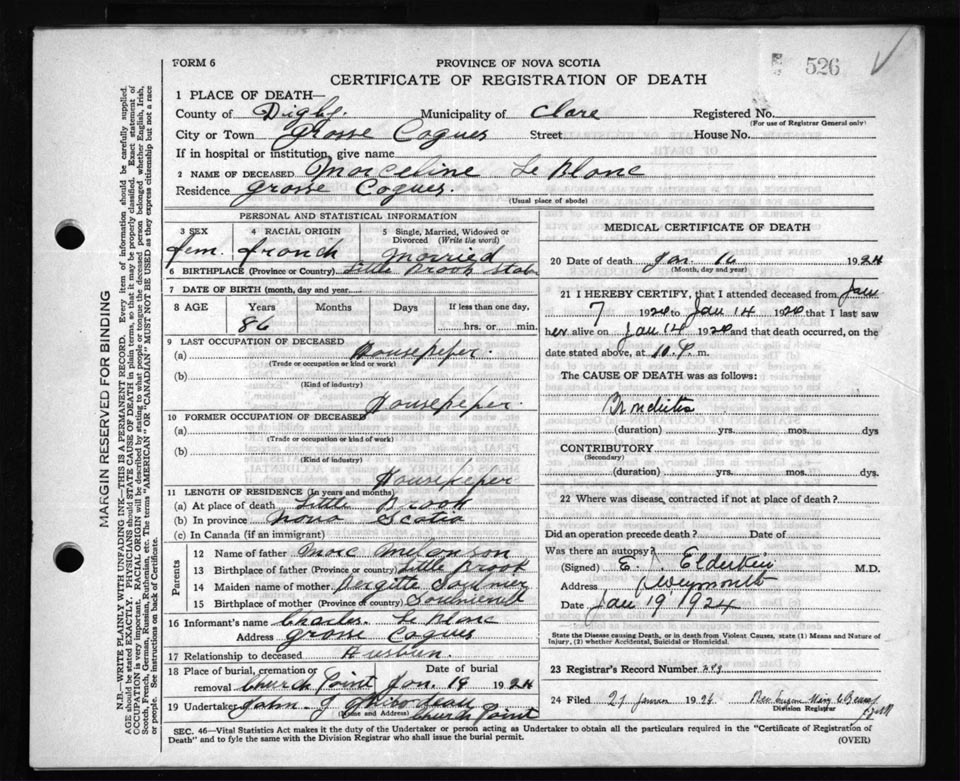 FORM 6
PROVINCE OF NOVA SCOTIA
526
CERTIFICATE OF REGISTRATION OF DEATH
1 PLACE OF DEATH—
County of Digby Municipality of Clare Registered No.
(For use of Registrar General only)
City or Town Grosse Coques Street House No.
If in hospital or institution, give name
2 NAME OF DECEASED Marceline Le Blanc
Residence Grosse Coques.
(Usual place of abode)
PERSONAL AND STATISTICAL INFORMATION
3 SEX 4 RACIAL ORIGIN 5 Single, Married, Widowed or Divorced (Write the word)
fem. french Married
6 BIRTHPLACE (Province or Country) Little Brook
7 DATE OF BIRTH (month, day and year)
8 AGE Years Months Days If less than one day,
86 hrs. or min.
9 LAST OCCUPATION OF DECEASED
(a) Housepeper.
(Trade or occupation or kind or work)
(b)
(Kind of industry)
Housepeper.
10 FORMER OCCUPATION OF DECEASED
(a)
(Trade or occupation or kind of work)
(b)
(Kind of industry)
Housepeper
11 LENGTH OF RESIDENCE (In years and months)
(a) At place of death Little Brook
(b) In province Nova Scotia
(c) In Canada (if an immigrant)
Parents
12 Name of father Marc Melanson
13 Birthplace of father (Province or country) Little Brook
14 Maiden name of mother
15 Birthplace of mother (Province or country)
16 Informant's name Charles Le Blanc
Address Grosse Coques
17 Relationship to deceased
18 Place of burial, cremation or removal Church Point Date of burial Jan. 19 1924
19 Undertaker John J Thibodeau
(Name and Address) Church Point
MEDICAL CERTIFICATE OF DEATH
20 Date of death Jan. 16 1924
(Month, day and year)
21 I HEREBY CERTIFY, that I attended deceased from Jan
7 1920 to Jan 14 1920 that I last saw
her alive on Jan 14 1920 and that death occurred, on the
date stated above, at 10. P. m.
The CAUSE OF DEATH was as follows:
Bronchitis
(duration) yrs. mos. dys
CONTRIBUTORY
(Secondary)
(duration) yrs. mos. dys.
22 Where was disease, contracted if not at place of death?
Did an operation precede death? Date of
Was there an autopsy?
(Signed) E. Elderkin M.D.
Address Weymouth
Date Jan 19 1924
State the Disease causing Death, or in death from Violent Causes, state (1) Means and Nature of
Injury, (2) whether Accidental, Suicidal or Homicidal.
23 Registrar's Record Number
24 Filed 21 192
Division Registrar
SEC. 46—Vital Statistics Act makes it the duty of the Undertaker or person acting as Undertaker to obtain all the particulars required in the "Certificate of Registration of
Death" and to fyle the same with the Division Registrar who shall issue the burial permit.
(OVER)
MARGIN RESERVED FOR BINDING
N.B.—WRITE PLAINLY WITH UNFADING INK—THIS IS A PERMANENT RECORD. Every item of information should be carefully supplied.
AGE should be stated EXACTLY. PHYSICIANS should STATE CAUSE OF DEATH in plain terms, so that it may be properly classified. Exact statement of
OCCUPATION is very important. RACIAL ORIGIN will be described by stating to what people or tongue the deceased person belonged whether English, Irish,
Scotch, French, German, Russian, Ruthenian, etc. The terms "AMERICAN" or "CANADIAN" MUST NOT BE USED as they express citizenship but not a race
or people. See instructions on back of Certificate.